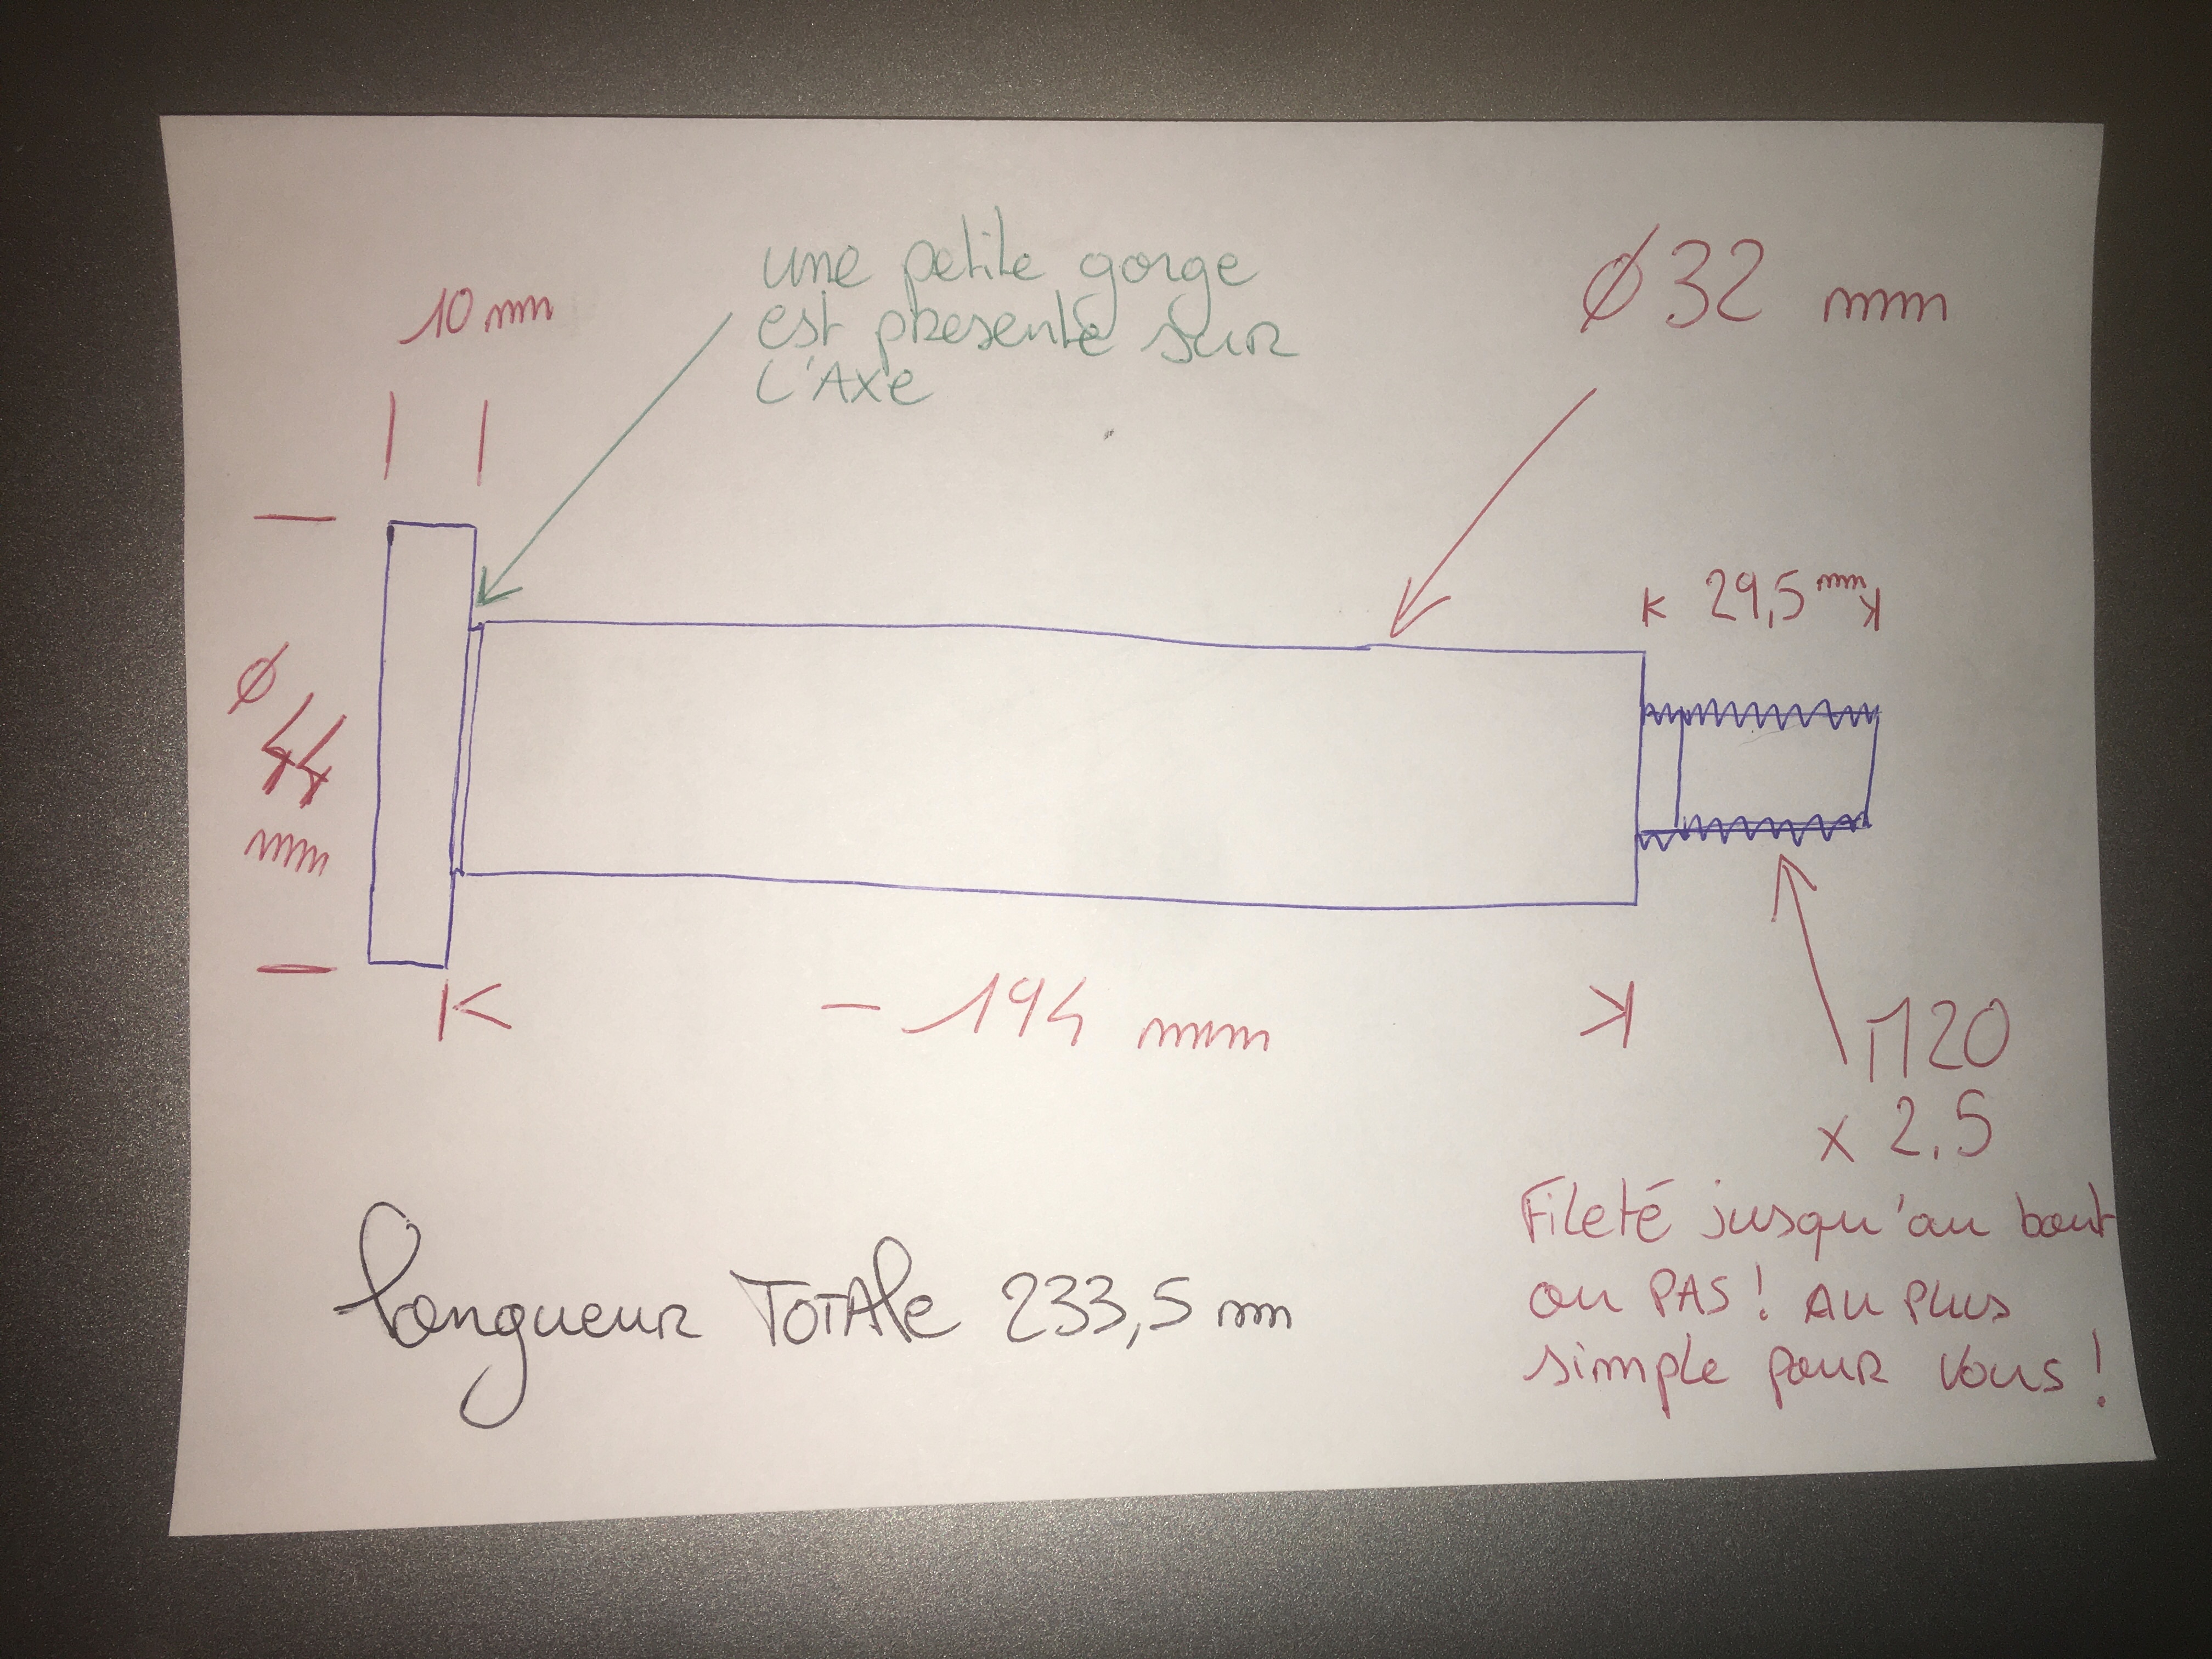 10 mm
une petite gorge
est présente sur
l'Axe
Ø 32 mm
29,5 mm
Ø
44
mm
- 194 mm
M20
x 2.5
Fileté jusqu'au bout
ou PAS! Au plus
simple pour vous!
Longueur TOTAle 233,5 mm